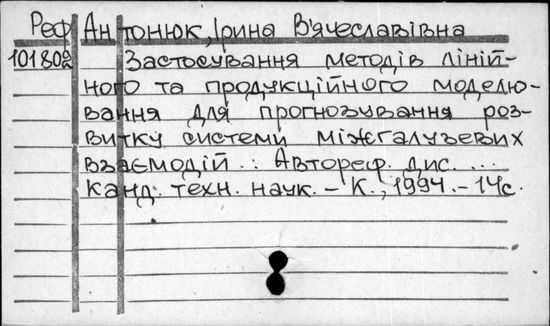 Реф Антонюк, Ірина В'ячеславівна
101802 Застосування методів ліній-
ного та продукційного моделю-
вання для прогнозування роз-
витку системи міжгалузевих
взаємодій : Автореф. дис. ...
канд. техн. наук. - К., 1994. - 14с.